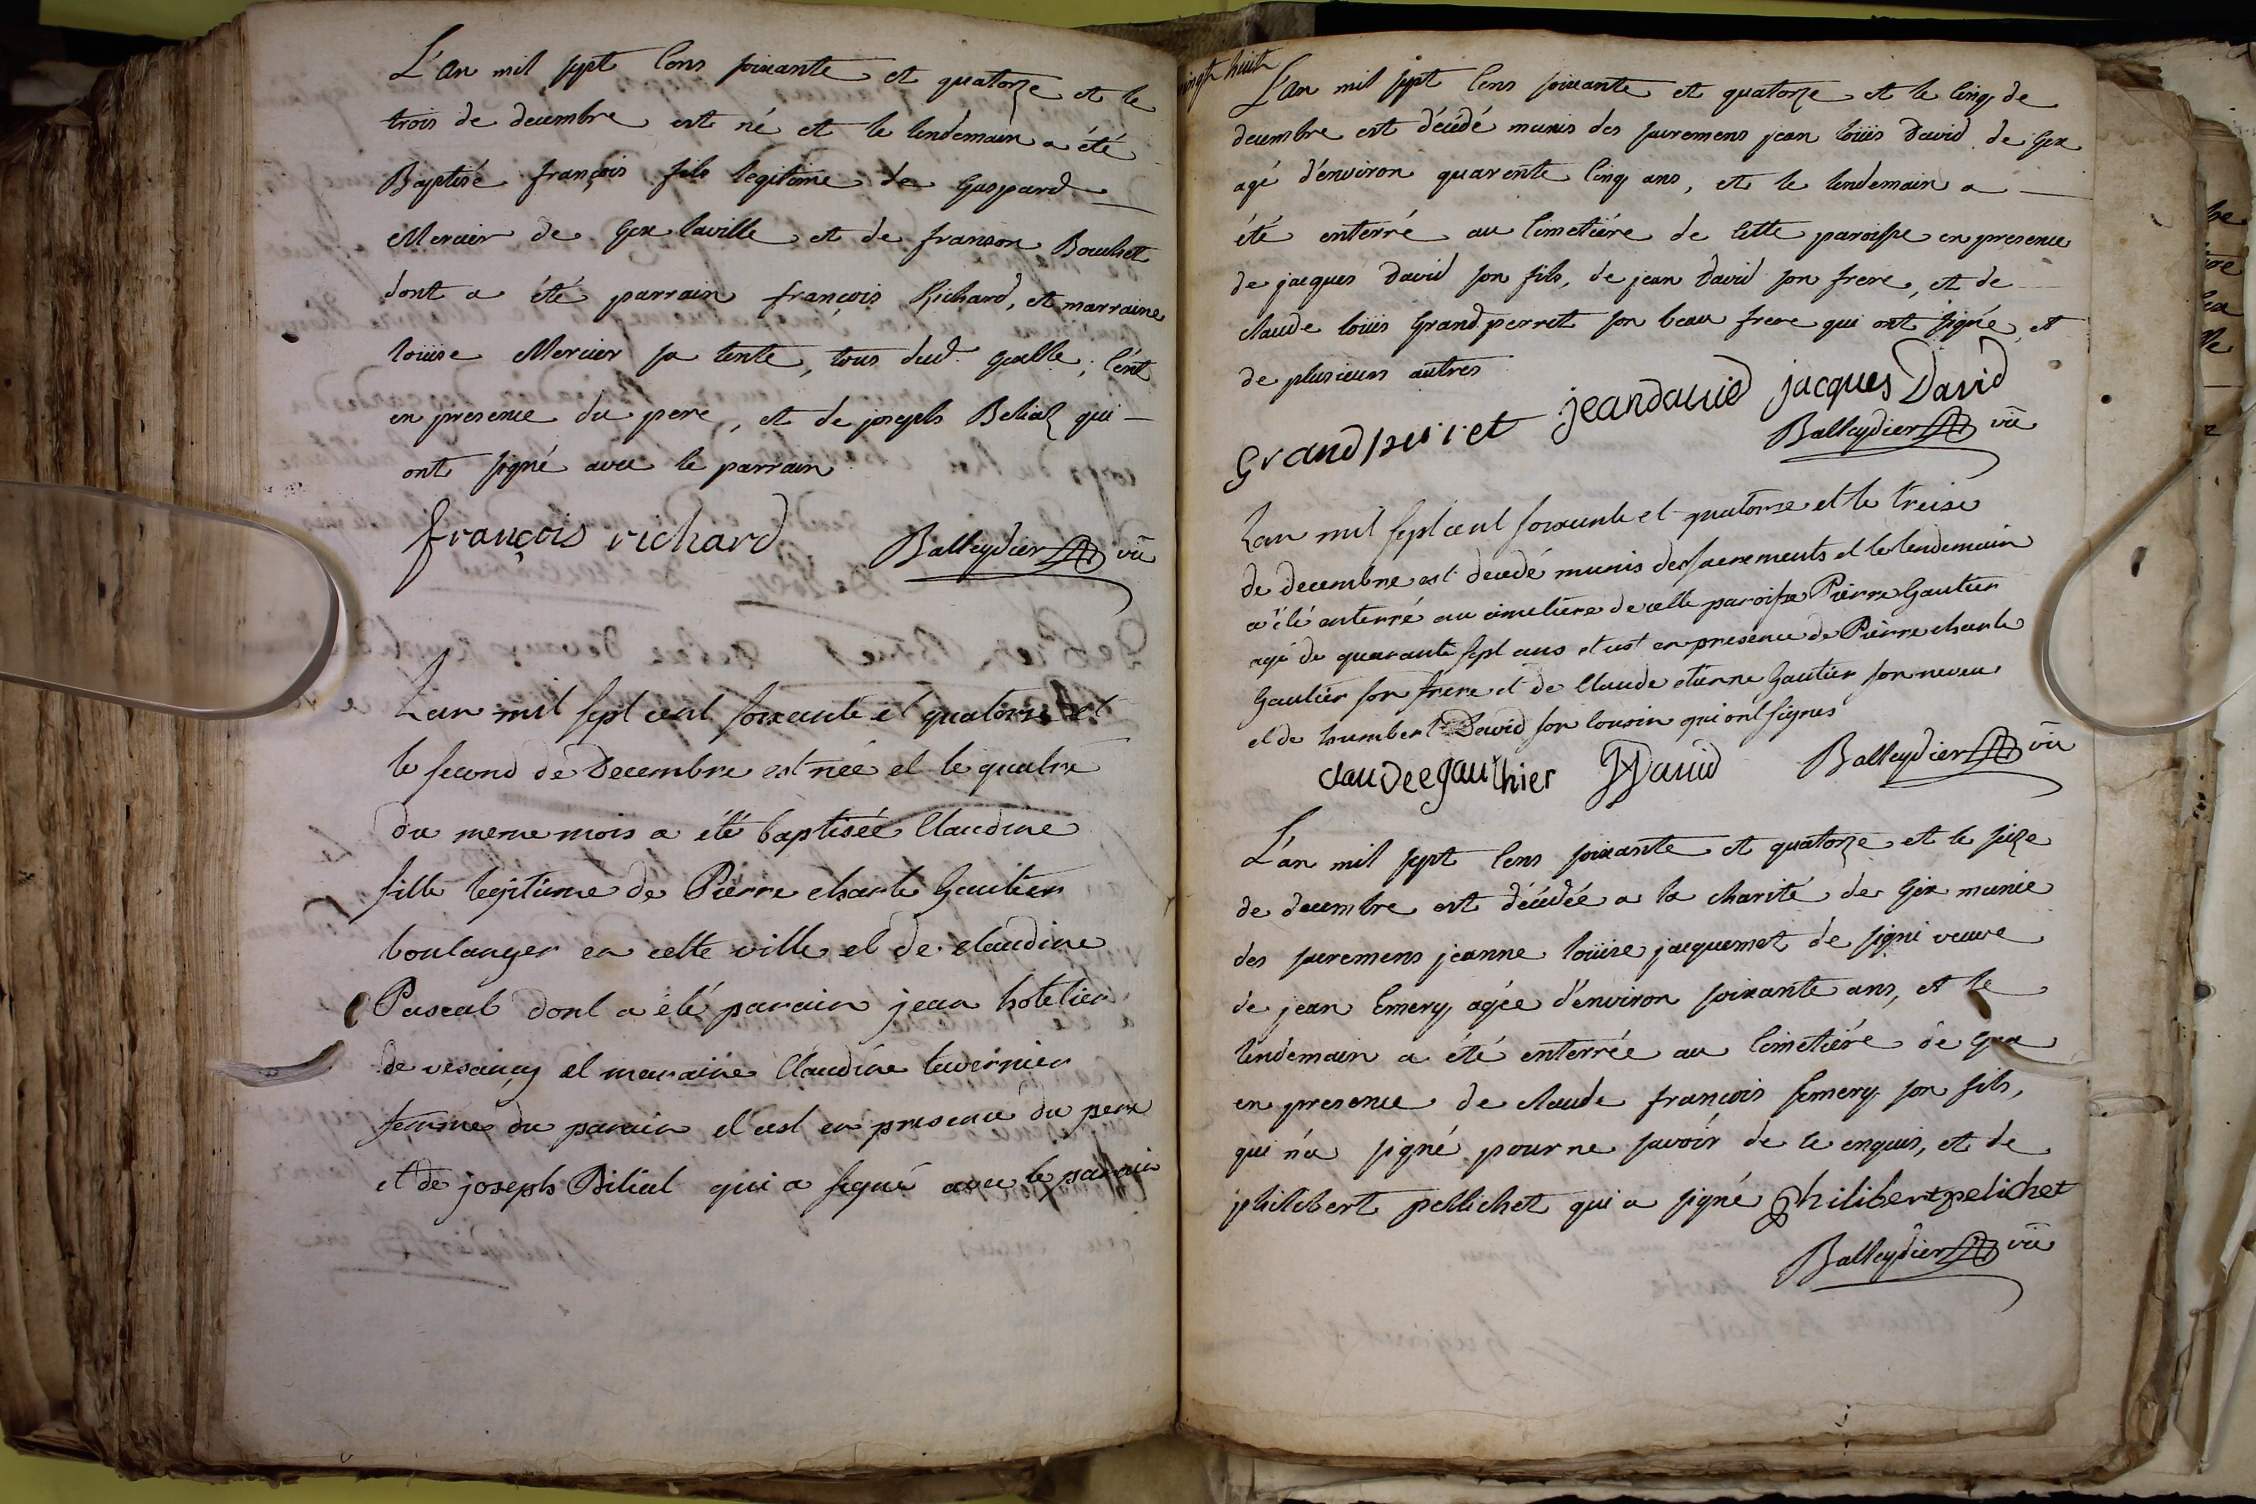 L'an mil sept cens soixante et quatorze et le
trois de decembre est né et le lendemain a été
Baptisé françois fils legitime de Gaspard
Mercier de Gex laville et de franson Bouchet
dont a été parrain françois Richard, et marraine
loüise Mercier sa tente, tous dud. Gexlle; c'ent
en presence du pere, et de joseph Belial qui
ont signé avec le parrain
françois richard Balleydier vic
Lan mil sept cent soixante et quatorze et
le second de Decembre est née et le quatre
du meme mois a été baptisée Claudine
fille legitime de Pierre charle Gautier
boulanger en cette ville et de claudine
Pascal dont a été parain jean hotelier
de vesancy et maraine Claudine tavernier
femme du parain et cest en presence du pere
et de joseph Bilial qui a signé avec le parain
vingt huit
L'an mil sept cens soixante et quatorze et le cinq de
decembre est décédé munis des sacremens jean loüis David de Gex
agé d'environ quarente cinq ans, et le lendemain a
été enterré au cimetiére de cette paroisse en presence
de jacques David son fils, de jean David son frere, et de
claude loüis Grandperret son beau frere qui ont signé, et
de plusieurs autres
Grandperret jeandauid jacques David
Balleydier vic
Lan mil sept cent soixante et quatorze et le treise
de decembre est decedé munis des sacrements et le lendemain
a été enterré au cimetiere de cette paroisse Pierre Gautier
agé de quarante sept ans et cest en presence de Pierre charle
Gautier son frere et de Claude etienne Gautier son neveu
et de humbert David son cousin qui ont signes
clauDeegauthier HDauid Balleydier vic
L'an mil sept cens soixante et quatorze et le seize
de decembre est décédée a la charité de Gex munie
des sacremens jeanne loüise jacquemet de signi veuve
de jean Emery agée d'environ soixante ans, et le
lendemain a été enterrée au cimetiére de Gex
en presence de claude françois femery son fils,
qui n'a signé pour ne savoir de ce enquis, et de
philebert pellichet qui a signé philibertpelichet
Balleydier vic